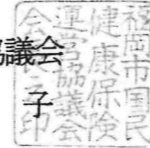 協議会
子
福岡市国民
健康保険
運営協議会
会長之印